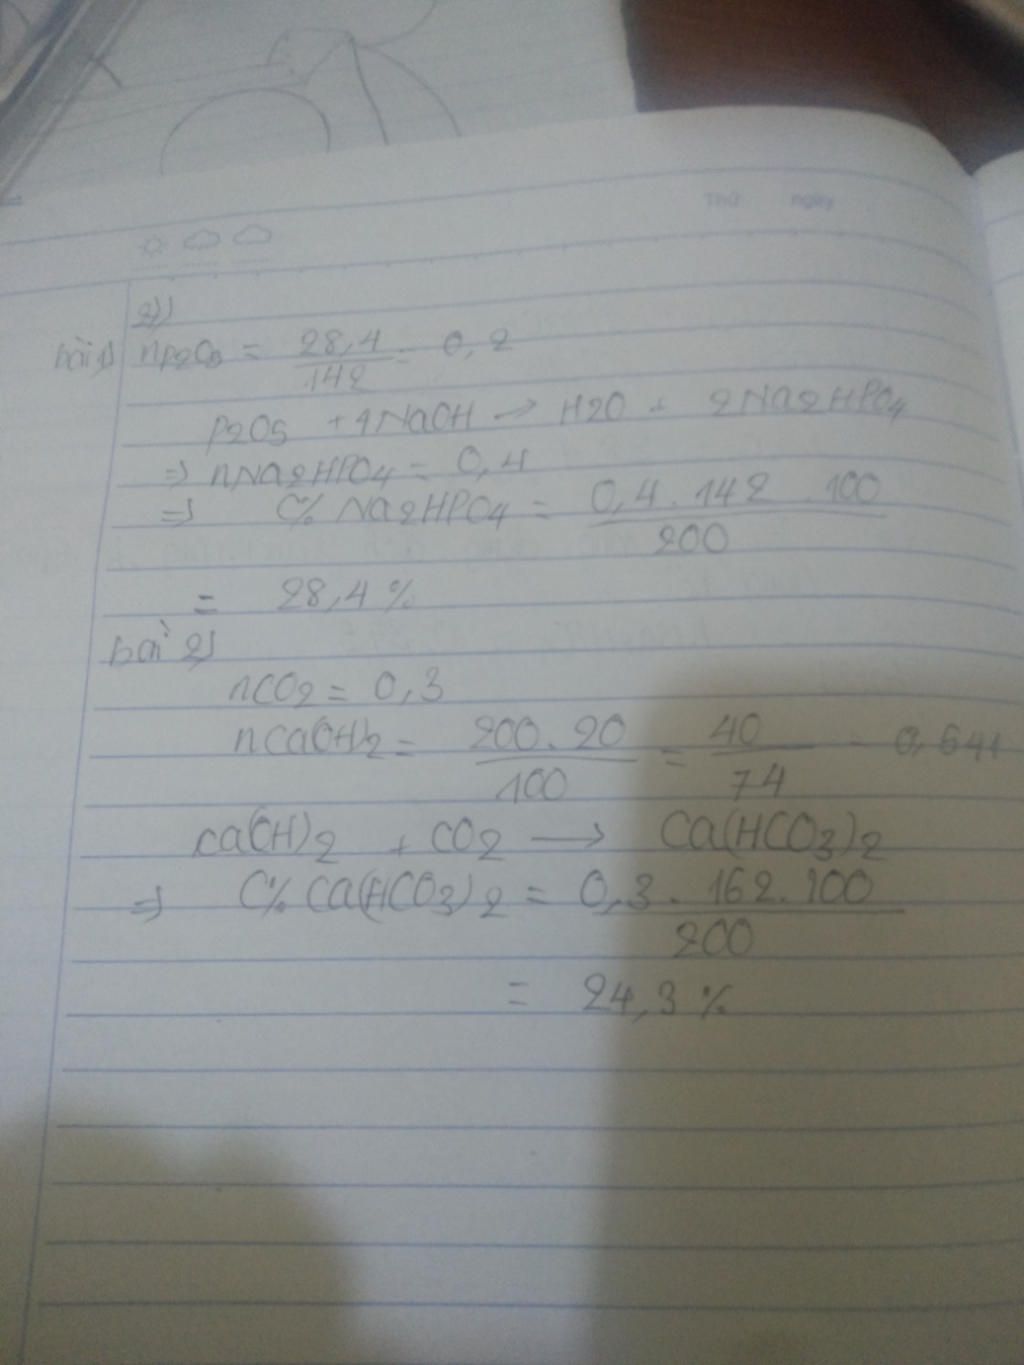 Thứ ngày
2))
bài 1) nP2O5 = 28,4 / 142 = 0,2
P2O5 + 4NaOH → H2O + 2Na2HPO4
⇒ nNa2HPO4 = 0,4
⇒ C% Na2HPO4 = 0,4 . 142 . 100 / 200
= 28,4 %
bài 2)
nCO2 = 0,3
nCa(OH)2 = 200 . 20 / 100 = 40 / 74 = 0,541
Ca(OH)2 + CO2 → Ca(HCO3)2
⇒ C% Ca(HCO3)2 = 0,3 . 162 . 100 / 200
= 24,3 %